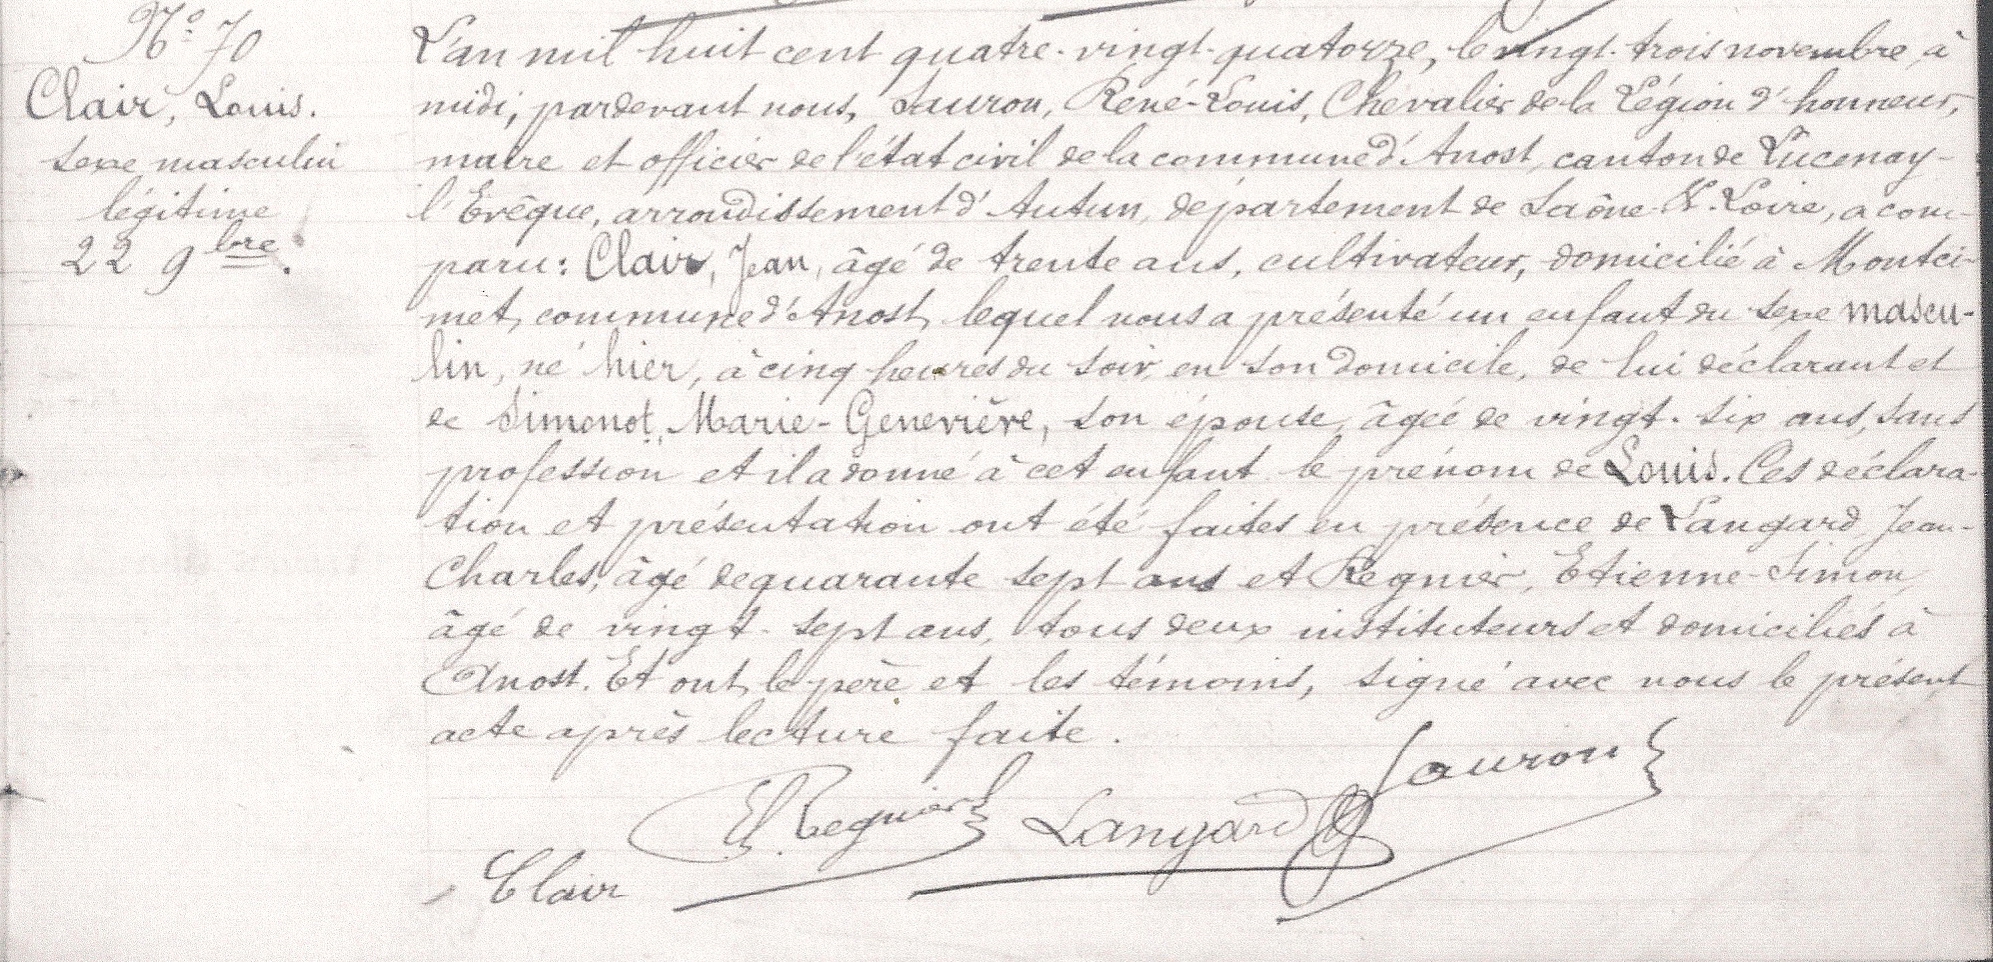 N° 70
Clair, Louis.
sexe masculin
légitime
22 9bre.
L'an mil huit cent quatre-vingt-quatorze, le vingt-trois novembre, à
midi, pardevant nous, Sauron, René-Louis, Chevalier de la Légion d'honneur,
maire et officier de l'état civil de la commune d'Anost, canton de Lucenay-
l'Evêque, arrondissement d'Autun, département de Saône-&-Loire, a com-
paru: Clair, Jean, âgé de trente ans, cultivateur, domicilié à Montci-
met, commune d'Anost, lequel nous a présenté un enfant du sexe mascu-
lin, né hier, à cinq heures du soir, en son domicile, de lui déclarant et
de Simonot, Marie-Geneviève, son épouse, âgée de vingt-six ans, sans
profession et il a donné à cet enfant le prénom de Louis. Ces déclara-
tion et présentation ont été faites en présence de Langard, Jean-
Charles, âgé de quarante sept ans et Regnier, Etienne-Simon,
âgé de vingt-sept ans, tous deux instituteurs et domiciliés à
Anost. Et ont, le père et les témoins, signé avec nous le présent
acte après lecture faite.
Sauron
E Regnier Langard
Clair